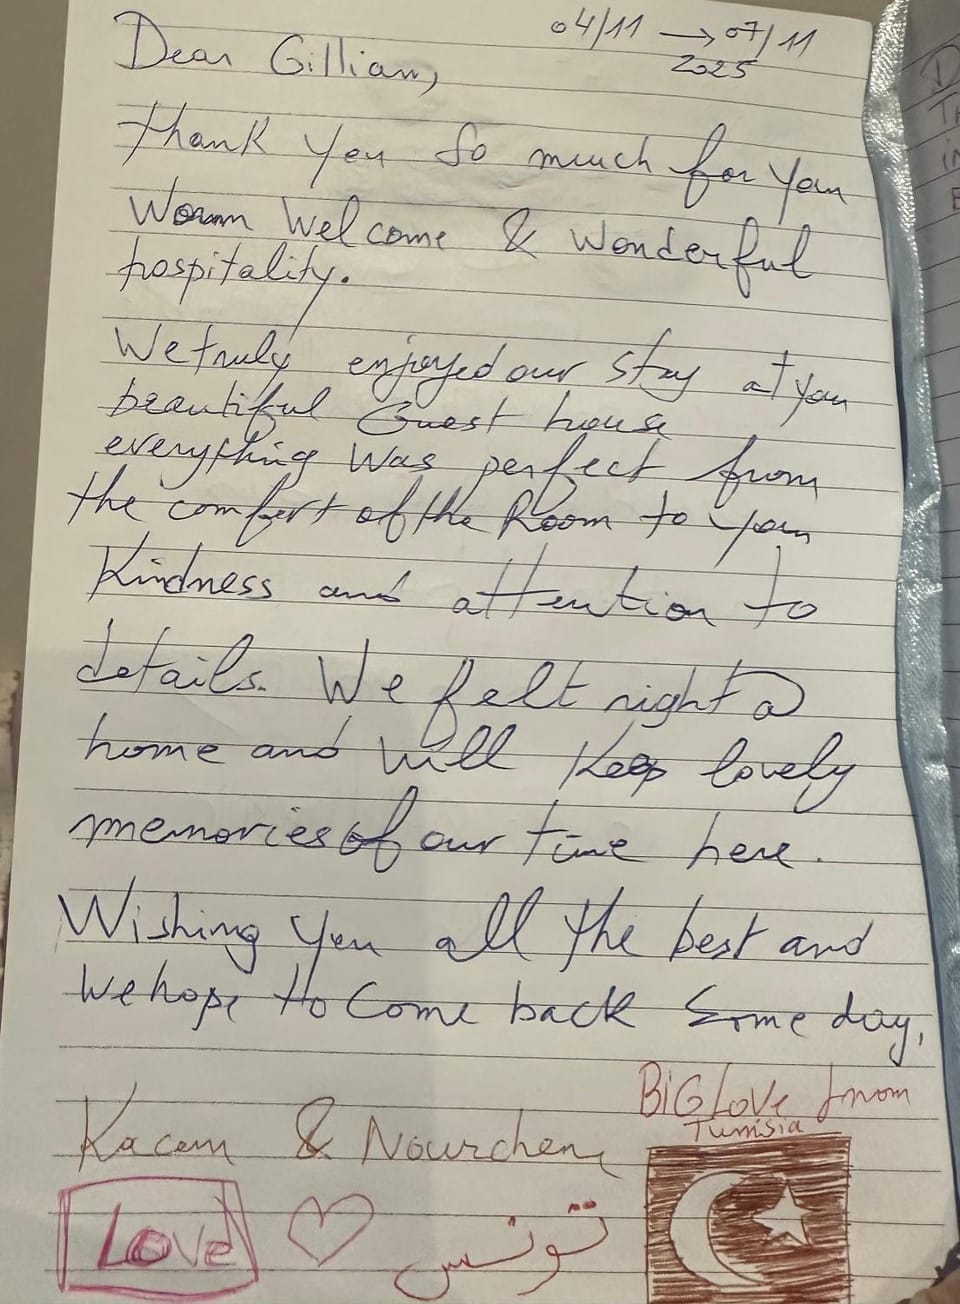 04/11 → 07/11
2025
Dear Gillian,
thank you so much for your
Warm Welcome & Wonderful
hospitality.
We truly enjoyed our stay at your
beautiful Guest house
everything was perfect from
the comfort of the Room to your
Kindness and attention to
details. We felt right a
home and will keep lovely
memories of our time here.
Wishing you all the best and
We hope to come back some day,
BiG Love from
Tunisia
Kacem & Nourchene
Love
تونس